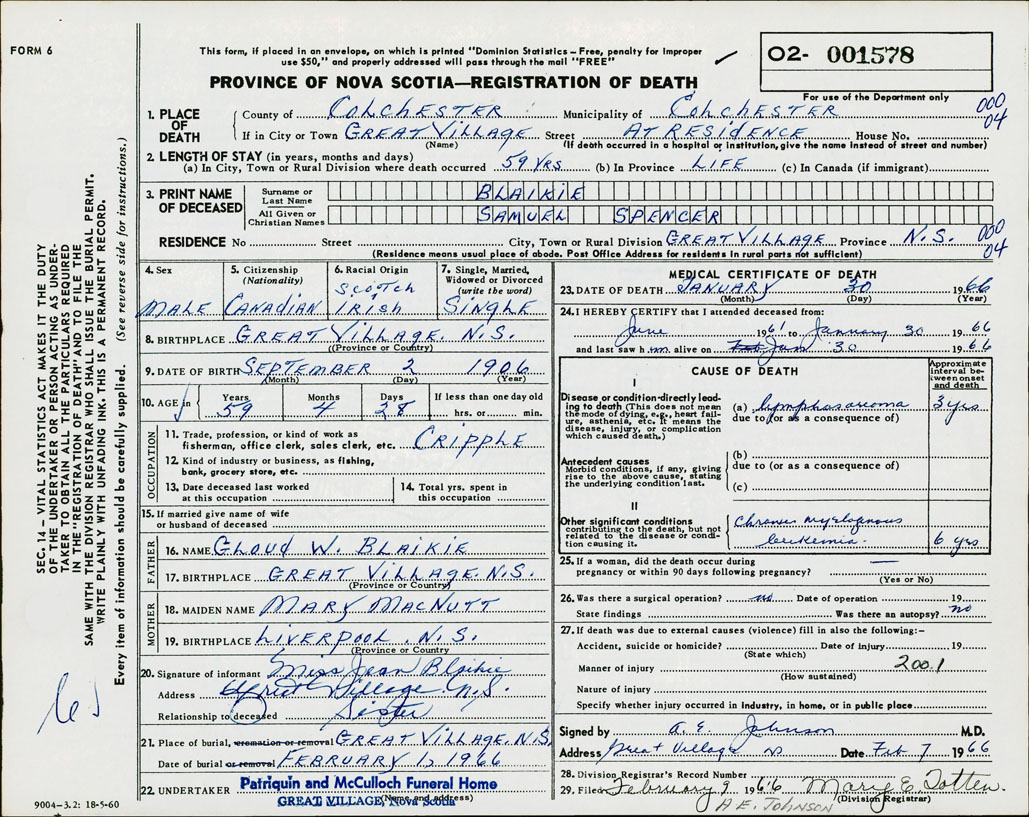 FORM 6
This form, if placed in an envelope, on which is printed "Dominion Statistics – Free, penalty for improper
use $50," and properly addressed will pass through the mail "FREE"
PROVINCE OF NOVA SCOTIA—REGISTRATION OF DEATH
02- 001578
For use of the Department only
1. PLACE OF DEATH
County of COLCHESTER Municipality of COLCHESTER
000
04
If in City or Town GREAT VILLAGE Street AT RESIDENCE House No.
(Name) (If death occurred in a hospital or institution, give the name instead of street and number)
2. LENGTH OF STAY (in years, months and days)
(a) In City, Town or Rural Division where death occurred 59 YRS (b) In Province LIFE (c) In Canada (if immigrant)
3. PRINT NAME OF DECEASED
Surname or Last Name BLAIKIE
All Given or Christian Names SAMUEL SPENCER
RESIDENCE No Street City, Town or Rural Division GREAT VILLAGE Province N.S.
000
04
(Residence means usual place of abode. Post Office Address for residents in rural parts not sufficient)
4. Sex MALE
5. Citizenship (Nationality) CANADIAN
6. Racial Origin SCOTCH & IRISH
7. Single, Married, Widowed or Divorced (write the word) SINGLE
8. BIRTHPLACE GREAT VILLAGE. N.S.
(Province or Country)
9. DATE OF BIRTH SEPTEMBER 2 1906
(Month) (Day) (Year)
10. AGE in Years 59 Months 4 Days 28 If less than one day old hrs. or min.
OCCUPATION
11. Trade, profession, or kind of work as
fisherman, office clerk, sales clerk, etc. CRIPPLE
12. Kind of industry or business, as fishing,
bank, grocery store, etc.
13. Date deceased last worked
at this occupation
14. Total yrs. spent in
this occupation
15. If married give name of wife
or husband of deceased
FATHER
16. NAME GLOUD W. BLAIKIE
17. BIRTHPLACE GREAT VILLAGE. N.S.
(Province or Country)
MOTHER
18. MAIDEN NAME MARY MACNUTT
19. BIRTHPLACE LIVERPOOL. N.S.
(Province or Country
20. Signature of informant Miss Jean Blaikie
Address Great Village. N.S.
Relationship to deceased Sister
21. Place of burial, cremation or removal GREAT VILLAGE. N.S.
Date of burial or removal FEBRUARY 1, 1966
22. UNDERTAKER Patriquin and McCulloch Funeral Home
(Name and address)
GREAT VILLAGE, Nova Scotia
9004-3.2: 18-5-60
MEDICAL CERTIFICATE OF DEATH
23. DATE OF DEATH JANUARY 30 1966
(Month) (Day) (Year)
24. I HEREBY CERTIFY that I attended deceased from:
June 1961 to January 30 1966
and last saw him alive on Jan 30 1966
CAUSE OF DEATH
Approximate interval between onset and death
I
Disease or condition directly leading to death (This does not mean the mode of dying, e.g., heart failure, asthenia, etc. It means the disease, injury, or complication which caused death.)
(a) lymphosarcoma 3 yrs
due to (or as a consequence of)
Antecedent causes
Morbid conditions, if any, giving rise to the above cause, stating the underlying condition last.
(b)
due to (or as a consequence of)
(c)
II
Other significant conditions
contributing to the death, but not related to the disease or condition causing it.
Chronic myelogenous
leukemia. 6 yrs
25. If a woman, did the death occur during
pregnancy or within 90 days following pregnancy? —
(Yes or No)
26. Was there a surgical operation? no Date of operation 19
State findings Was there an autopsy? no
27. If death was due to external causes (violence) fill in also the following:–
Accident, suicide or homicide? Date of injury 19
(State which)
Manner of injury 200.1
(How sustained)
Nature of injury
Specify whether injury occurred in industry, in home, or in public place
Signed by A. E. Johnson M.D.
Address Great Village NS Date Feb 7 1966
28. Division Registrar's Record Number
29. Filed February 9 1966 Mary E. Totten.
(Division Registrar)
A E. JOHNSON
SEC. 14 – VITAL STATISTICS ACT MAKES IT THE DUTY
OF THE UNDERTAKER OR PERSON ACTING AS UNDER-
TAKER TO OBTAIN ALL THE PARTICULARS REQUIRED
IN THE "REGISTRATION OF DEATH" AND TO FILE THE
SAME WITH THE DIVISION REGISTRAR WHO SHALL ISSUE THE BURIAL PERMIT.
WRITE PLAINLY WITH UNFADING INK. THIS IS A PERMANENT RECORD.
Every item of information should be carefully supplied. (See reverse side for instructions.)